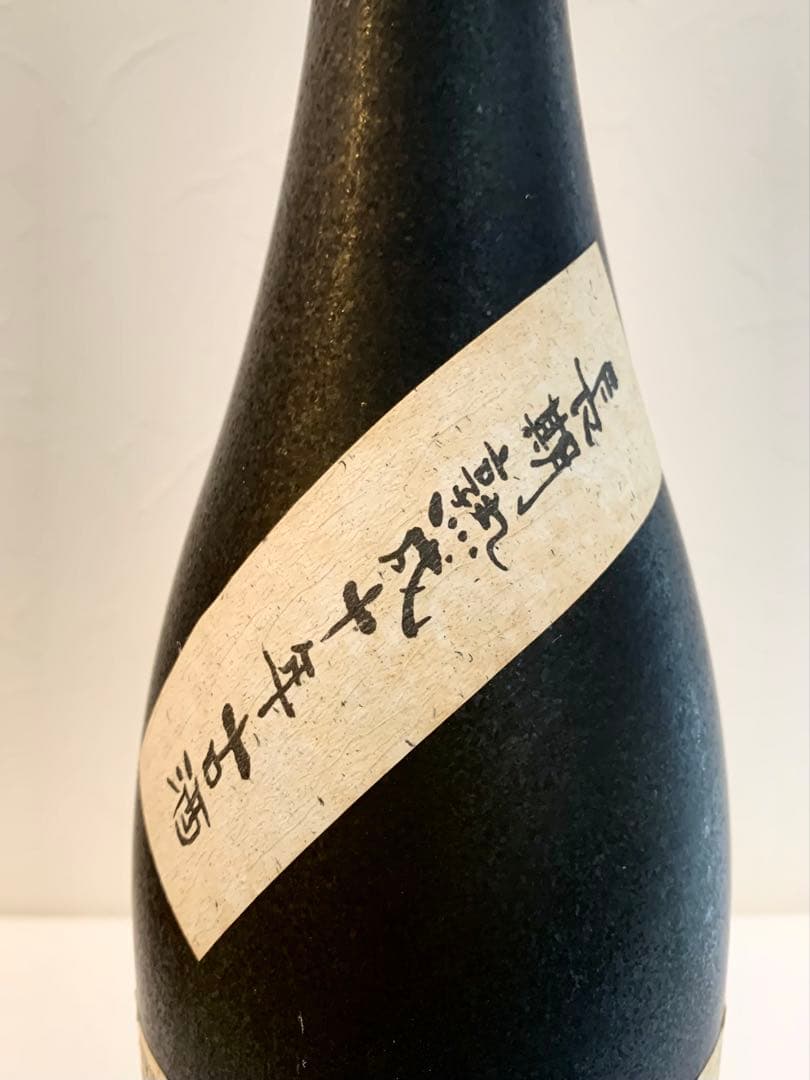 長期熟成十年古酒